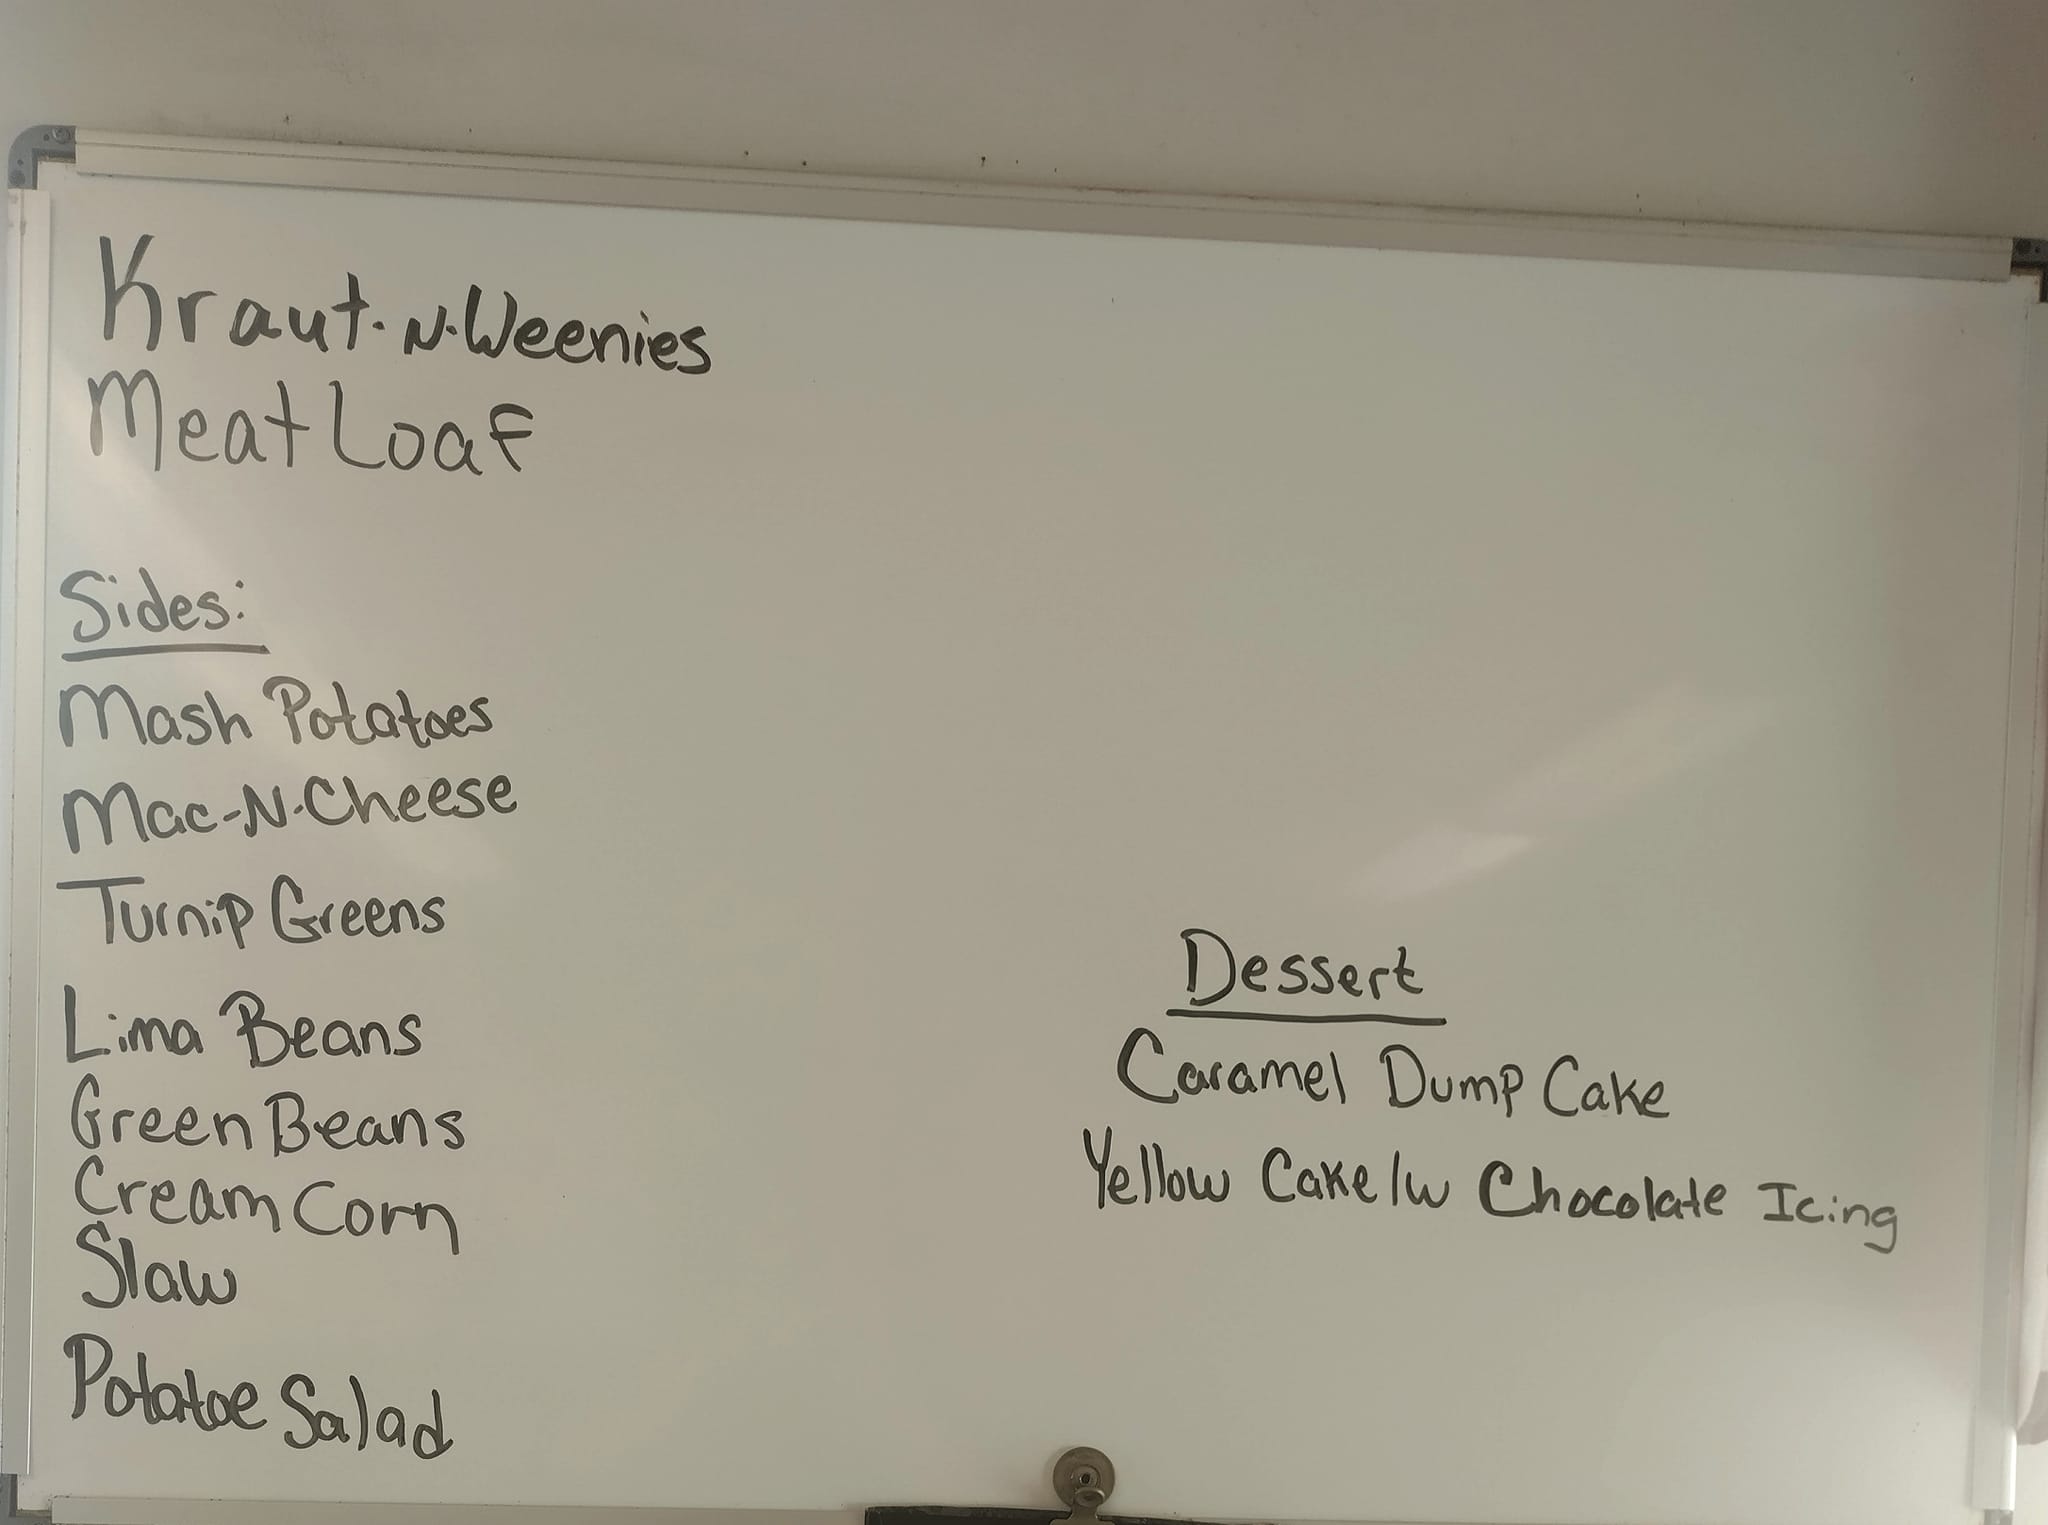 Kraut-N-Weenies
Meat Loaf
Sides:
Mash Potatoes
Mac-N-Cheese
Turnip Greens
Lima Beans
Green Beans
Cream Corn
Slaw
Potatoe Salad
Dessert
Caramel Dump Cake
Yellow Cake/w Chocolate Icing